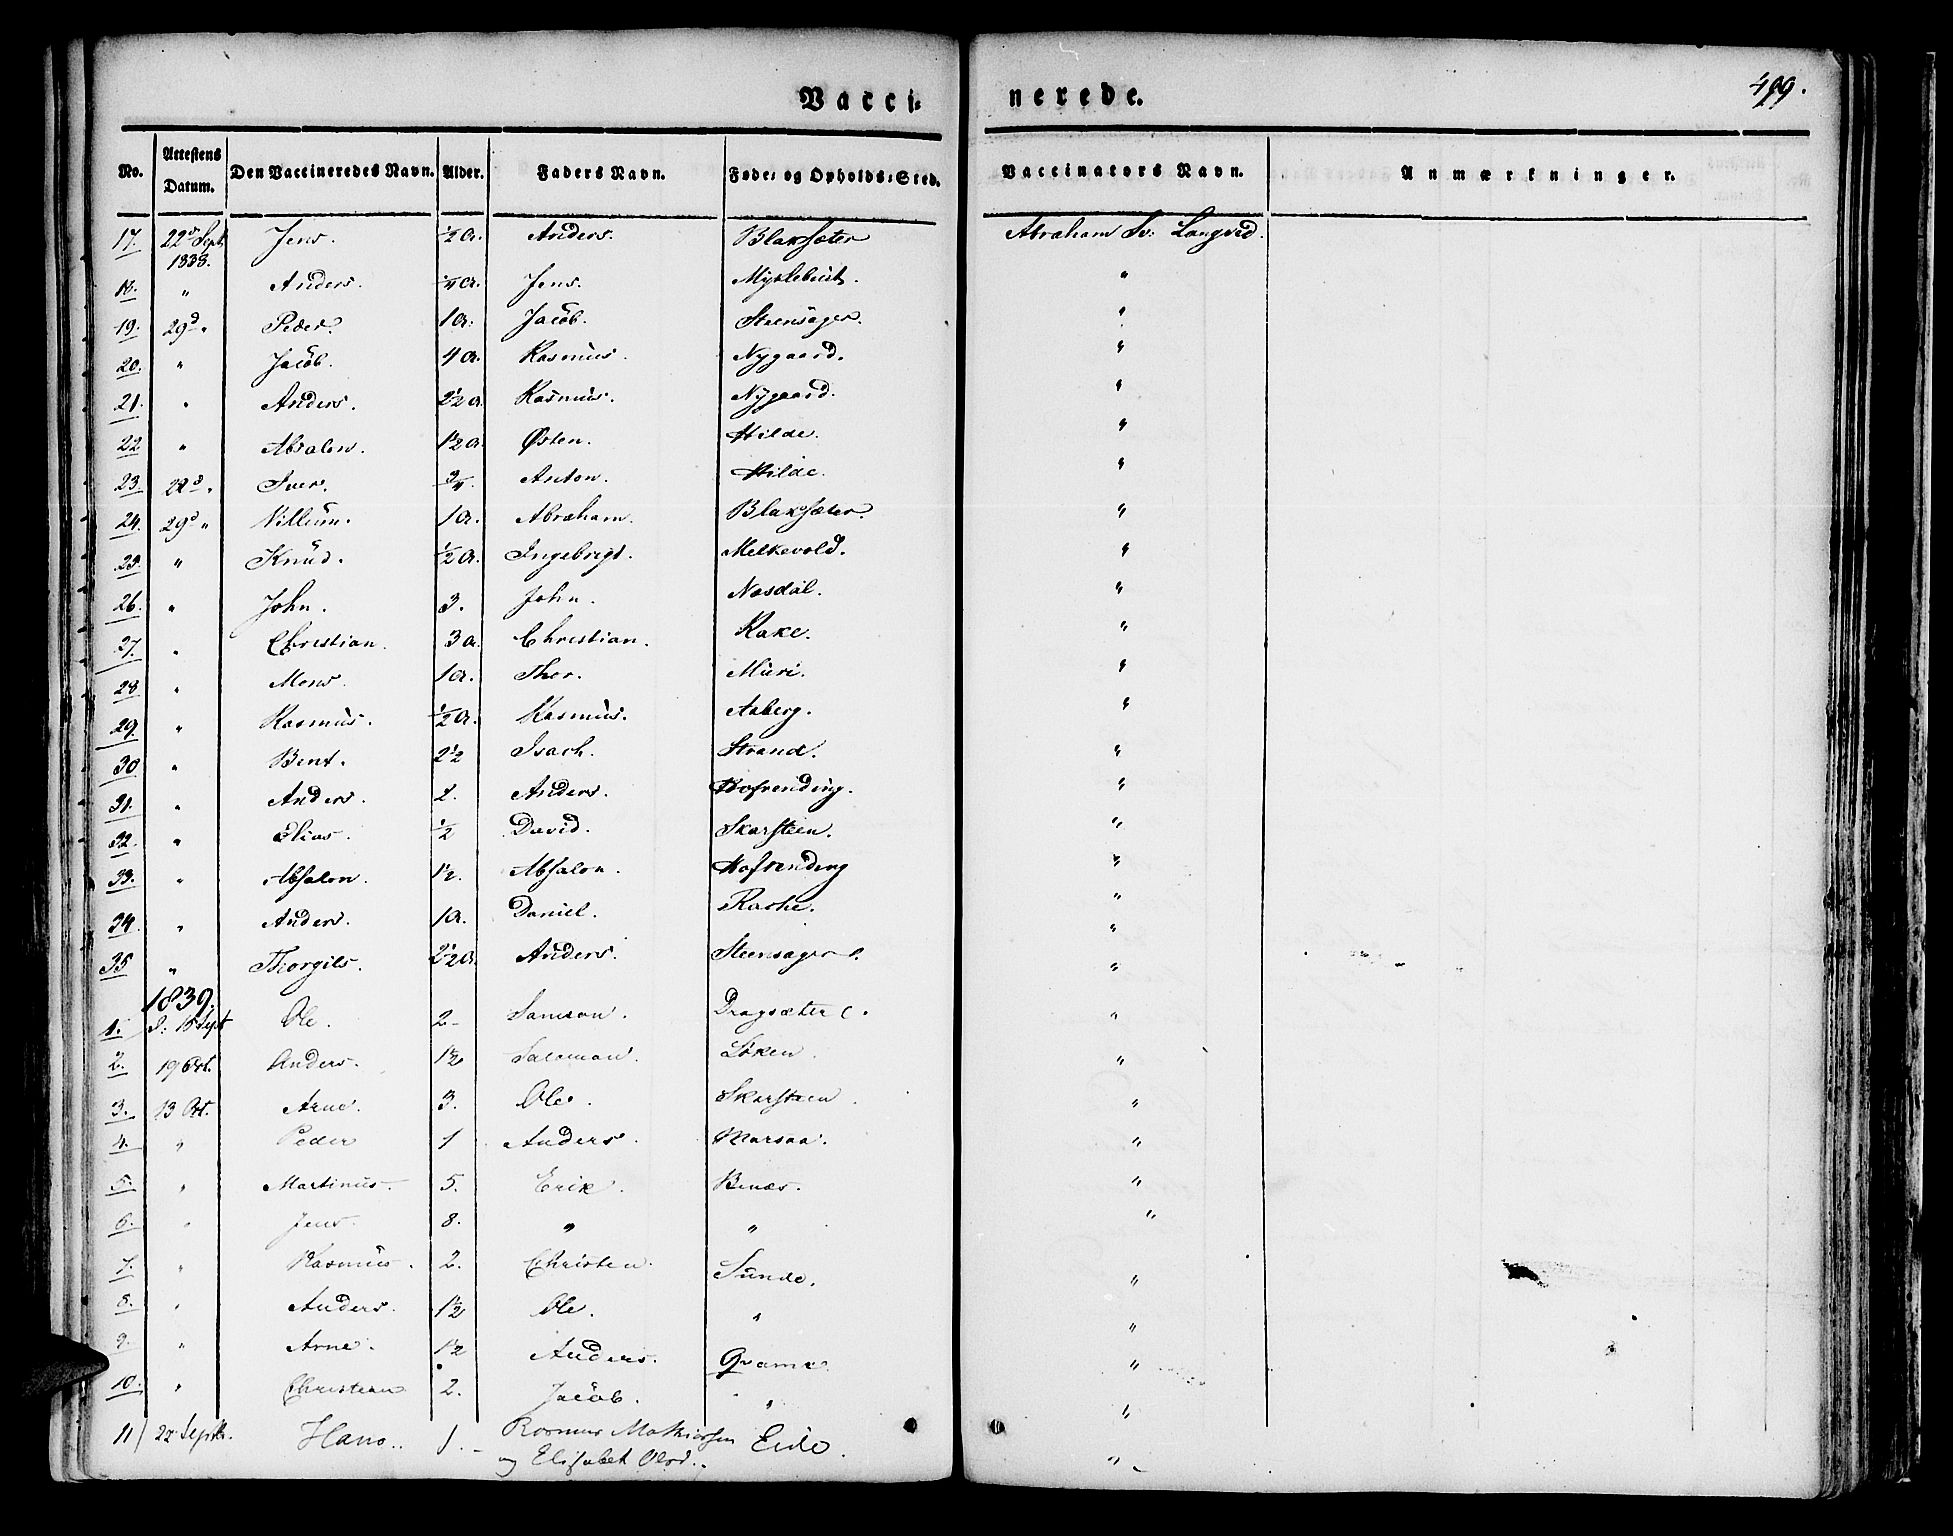 Vacci- nerede. 499.
No. Attestens Datum. Den Vaccineredes Navn. Alder. Faders Navn. Føde- og Opholds-Sted. Vaccinators Navn. Anmærkninger.
17. 22d Sept. 1838. Jens. 1/2 a. Anders. Blaksæter Abraham Sv: Langvid.
18. " Anders. 1/4 a. Jens. Myklebust. "
19. 29d " Peder. 1 a. Jacob. Steensager. "
20. " Jacob. 4 a. Rasmus. Nygaard. "
21. " Anders. 2 1/2 a. Rasmus. Nygaard. "
22 " Absalon. 1 1/2 a. Østen. Hilde. "
23. 22d " Iver. 3/4. Anton. Hilde. "
24. 29d " Villum. 1 a. Abraham. Blaksæter. "
25. " Knud. 1/2 a. Ingebrigt. Melkevold. "
26. " John. 3. John. Nosdal. "
27. " Christian. 3 a. Christian. Rake. "
28 " Mons. 1 a. Thor. Muri. "
29. " Rasmus. 1/2 a. Rasmus. Aaberg. "
30 " Bent. 2 1/2 Isach. Strand. "
31. " Anders. 2. Anders. Hofrending. "
32. " Elias. 1/2 David. Skarsteen. "
33. " Absalon. 1 1/2. Absalon. Hofrending "
34. " Anders. 1 a. Daniel. Rache. "
35 " Thorgils. 2 1/2 a. Anders. Steensager. "
1839.
1. 15 Sept Ole. 2- Samson. Dragsæter. "
2. 19 Oct. Anders. 1 1/2 Salomon. Løken. "
3. 13 Oct. Arne. 3. Ole. Skarsteen. "
4. " Peder 1 Anders. Marsaa. "
5. " Martinus. 5. Erik. Benæs. "
6. " Jens. 8. " " "
7. " Rasmus. 2. Christen. Sunde. "
8. " Anders. 1 1/2 Ole. " "
9. " Arne. 1 1/2 Anders. Qvame. "
10. " Christian 2. Jacob. " "
11) 22 Septbr. Hans. 1. Rasmus Mathiassen Eide. "
og Elisabet Olsd.